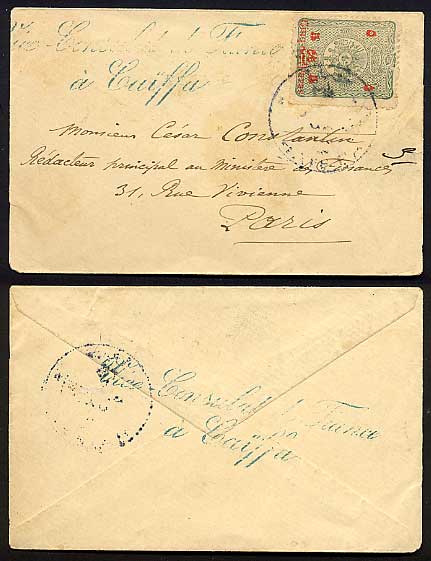 Vice-Consulat de France
à Caïffa
Monsieur César Constantin
Rédacteur principal au Ministère des Finances
31, Rue Vivienne
Paris
Vice-Consulat de France
à Caïffa